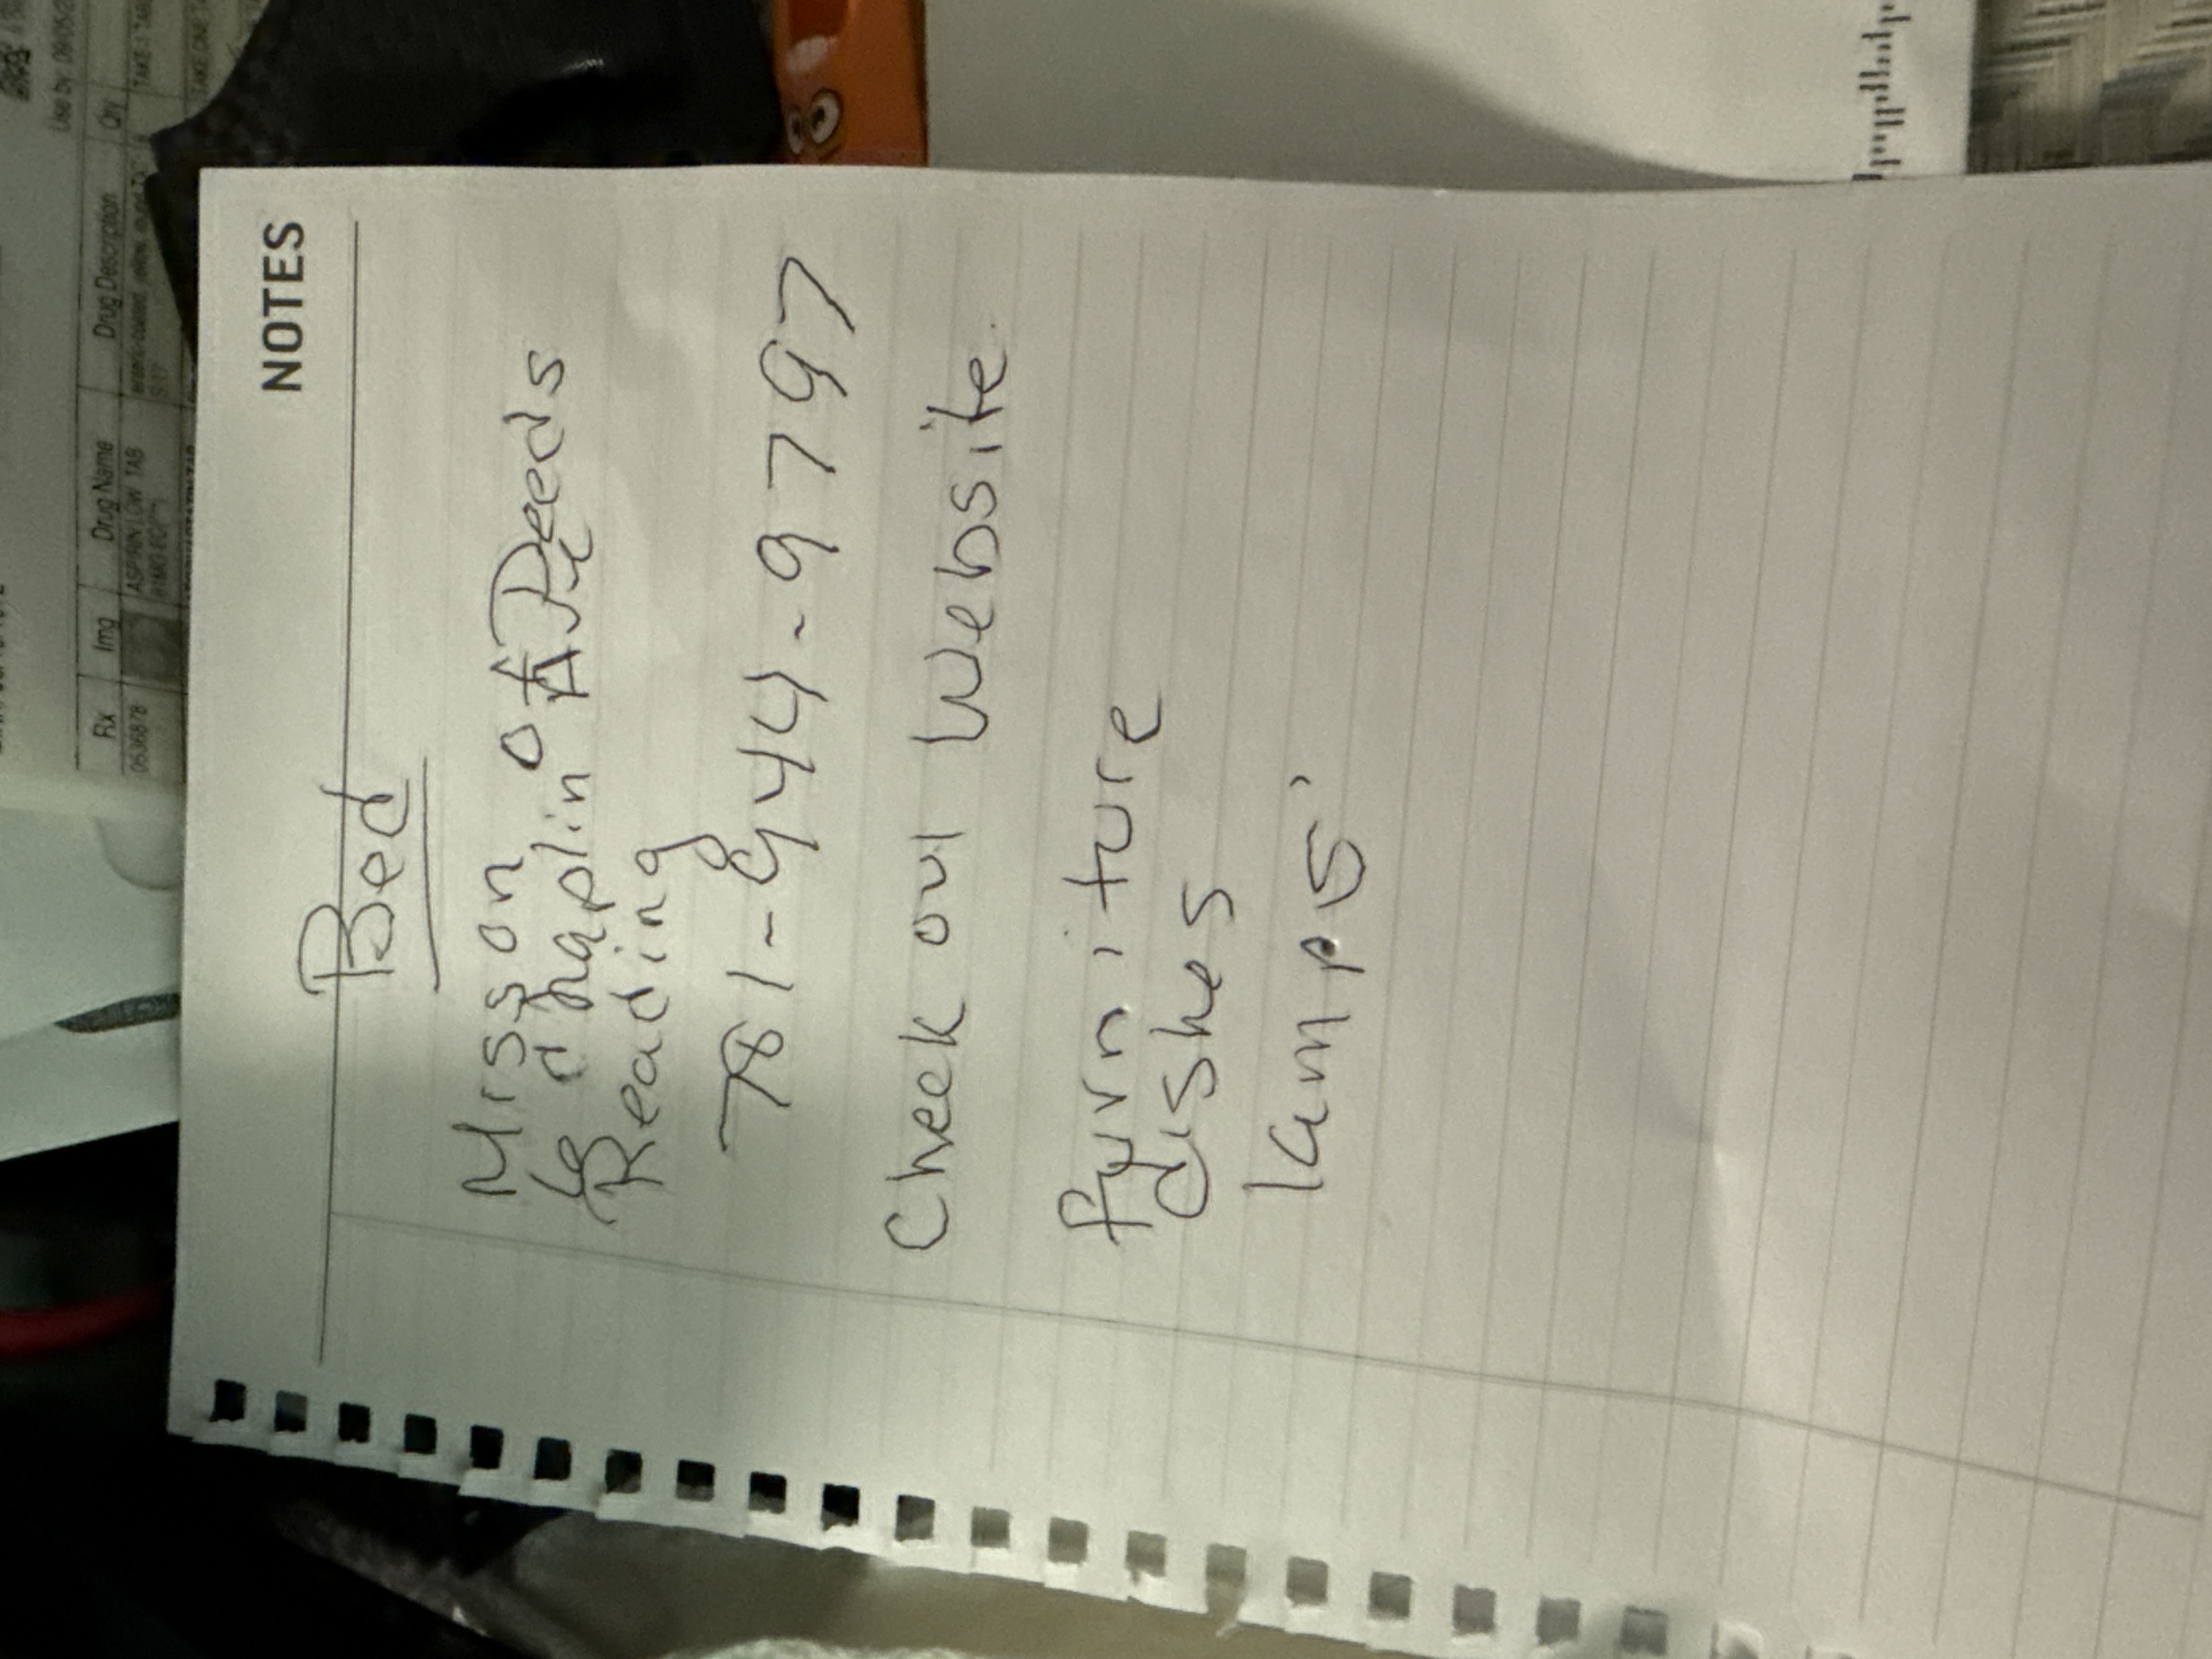 NOTES
Bed
Misson of Deeds
6 chaplin A
Reading
781-944-9797
Check out Website.
furniture
dishes
lamps
Use by
Rx Img Drug Name Drug Description Qty
0636878 ASPIRIN LOW TAB
TAKE 1 TAB
TAKE ONE TA